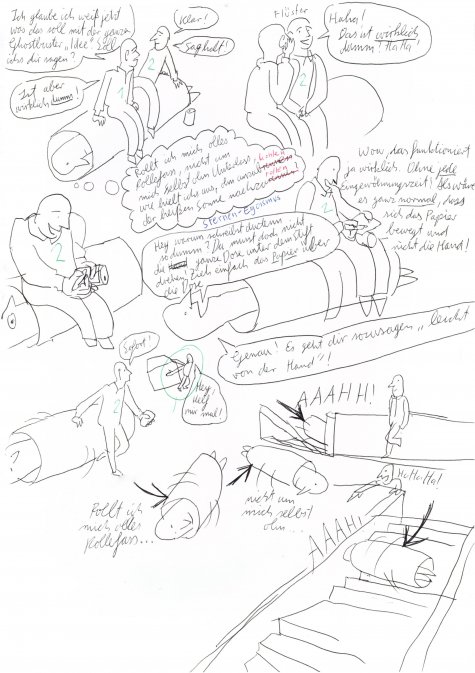 Ich glaube ich weiß jetzt
was das soll mit der ganzen
Ghostbuster „Idee“. Soll
ichs dir sagen?
Klar!
Sag halt!
Ist aber
wirklich dumm!
1
2
Flüster
Haha!
Das ist wirklich
dumm! HaHa!
2
Rollt ich mich olles
Rollefass, nicht um
mich selbst
wie hielt ichs aus,
rollen
der heißen Sonne nachzu
Sternen-Egoismus
Wow, das funktioniert
ja wirklich. Ohne jede
Eingewöhnungszeit! Als wäre
es ganz normal, dass
sich das Papier
bewegt und
nicht die Hand!
2
2
Hey warum schreibst du denn
so dumm? Du musst doch nicht
die ganze Dose unter dem Stift
drehen! Zieh einfach das Papier über
die Dose
Genau! Es geht dir sozusagen „leicht
von der Hand“!
Sofort!
2
Hey,
hilf
mir mal!
AAAHH!
HaHaHa!
Rollt ich
mich olles
Rollefass...
nicht um
mich selbst
ohn...
AAAH!